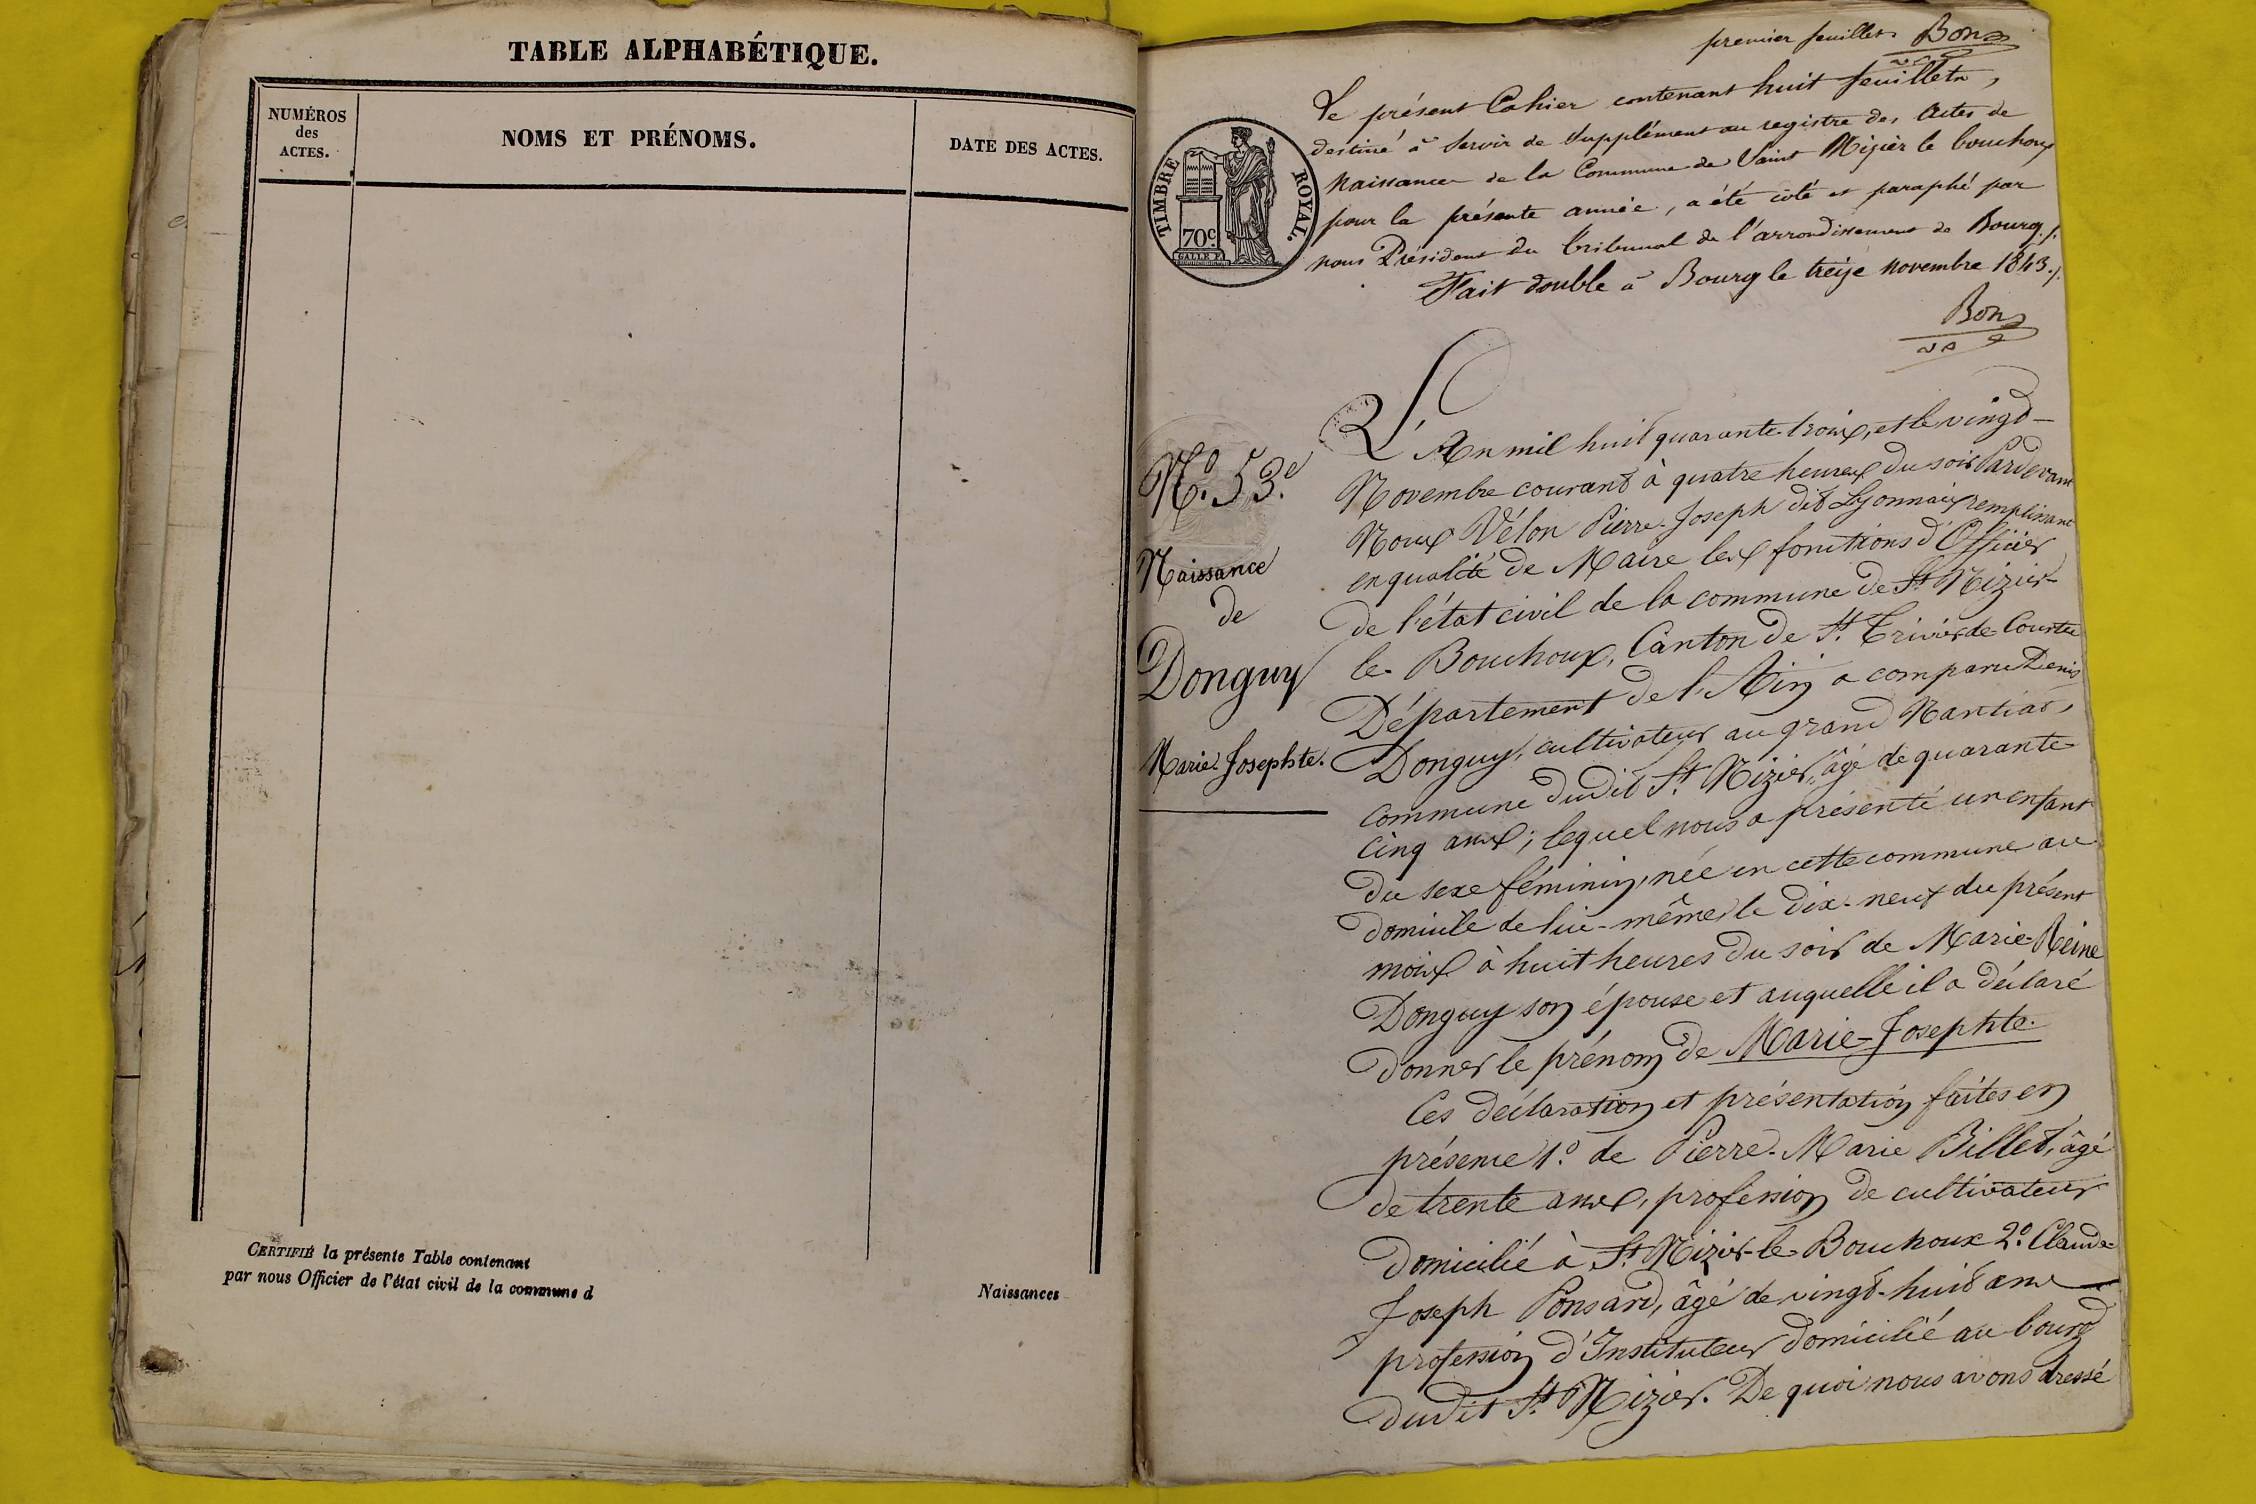 TABLE ALPHABÉTIQUE.
NUMÉROS
des
ACTES.
NOMS ET PRÉNOMS.
DATE DES ACTES.
CERTIFIÉ la présente Table contenant
par nous Officier de l'état civil de la commune d
Naissances
premier feuillet. Bon
Le présent Cahier contenant huit feuillets,
destiné à servir de Supplément au registre des Actes de
naissance de la Commune de Saint Nizier le bouchoux
pour la présente année, a été coté et paraphé par
nous Président du Tribunal de l'arrondissement de Bourg./.
Fait double à Bourg le treize novembre 1843./.
Bon
TIMBRE ROYAL.
70c.
N.o 53.e
Naissance
de
Donguy
Marie Josephte.
L'An mil huit quarante-trois, et le vingt-
Novembre courant à quatre heures du soir Pardevant
Nous Vélon Pierre-Joseph dit Lyonnais remplissant
en qualité de Maire les fonctions d'Officier
de l'état civil de la commune de St Nizier-
le-Bouchoux, Canton de St. Trivier de Courtes
Département de l'Ain a comparu Denis
Donguy, cultivateur au grand Nantiat,
commune dudit St. Nizier, âgé de quarante
cinq ans; lequel nous a présenté un enfant
du sexe féminin, née en cette commune au
domicile de lui-même, le dix-neuf du présent
mois à huit heures du soir de Marie-Reine
Donguy son épouse et auquelle il a déclaré
donner le prénom de Marie-Josephte.
Ces déclaration et présentation faites en
présence 1.o de Pierre-Marie Billet, âgé
de trente ans, profession de cultivateur
domicilié à St Nizier-le-Bouchoux 2.o Claude-
Joseph Ponsard, âgé de vingt-huit ans
profession d'Instituteur domicilié au bourg
dudit St. Nizier. De quoi nous avons dressé